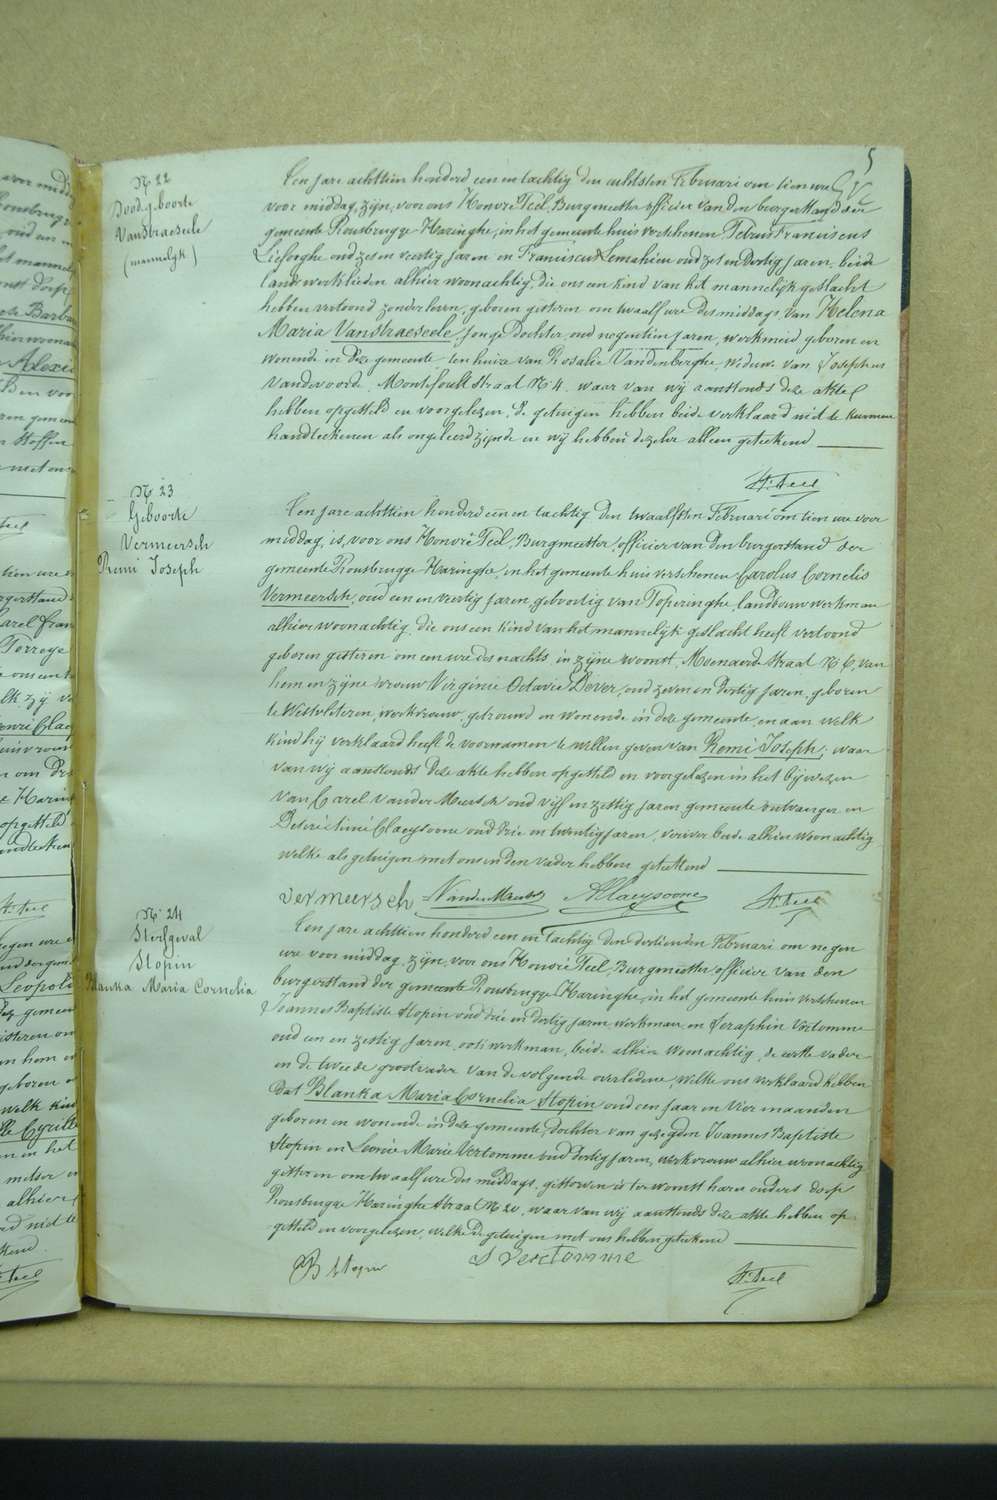 5
Nr 22
Doodgeboorte
Vanstraeseele
(mannelyk)
Een jare achttien honderd een en tachtig den achtsten Februari om tien ure
voor middag, zijn, voor ons Honoré Teel, Burgmeester officier van den burgerstand der
gemeente Rousbrugge Haringhe, in het gemeente huis verschenen Petrus Franciscus
Liefooghe oud zes en veertig jaren en Franciscus Lemahieu oud zes en dertig jaren, beide
landswerklieden alhier woonachtig, die ons een kind van het mannelijk geslacht
hebben vertoond zonder leven, geboren gisteren om twaalf ure des middags van Helena
Maria Vanstraeseele jonge dochter oud negentien jaren, werkmeid geboren en
wonende in deze gemeente ten huize van Rosalie Vandenberghe, weduwe van Josephus
Vandevoorde, straat Nr 4. waar van wij aanstonds deze akte
hebben opgesteld en voorgelezen, de getuigen hebben beide verklaard niet te kunnen
handteekenen als ongeleerd zijnde en wij hebben dezelve alleen geteekend
H. Teel
Nr 23
Geboorte
Vermeersch
Remi Joseph
Een jare achttien honderd een en tachtig den twaalfsten Februari om tien ure voor
middag, is, voor ons Honoré Teel, Burgmeester, officier van den burgerstand der
gemeente Rousbrugge Haringhe, in het gemeente huis verschenen Carolus Cornelis
Vermeersch, oud een en veertig jaren, geboortig van Poperinghe, landbouwwerkman
alhier woonachtig, die ons een kind van het mannelijk geslacht heeft vertoond
geboren gisteren om een ure des nachts in zijne woonst, straat Nr 6, van
hem en zijne vrouw Virginie Octavie Dever, oud zeven en dertig jaren, geboren
te Westvleteren, werkvrouw, getrouwd en wonende in deze gemeente, en aan welk
kind hij verklaard heeft de voornamen te willen geven van Remi Joseph; waar
van wij aanstonds deze akte hebben opgesteld en voorgelezen in het bijwezen
van Carel Vander Meersch oud vijf en zestig jaren gemeente ontvanger en
Claeysoone oud drie en twintig jaren, beide alhier woonachtig
welke als getuigen met ons en den vader hebben geteekend
vermeersch VanderMeersch AClaeysoone H. Teel
Nr 24
Sterfgeval
Stopin
Blanka Maria Cornelia
Een jare achttien honderd een en tachtig den dertienden Februari om negen
ure voor middag, zijn, voor ons Honoré Teel, Burgmeester officier van den
burgerstand der gemeente Rousbrugge Haringhe, in het gemeente huis verschenen
Joannes Baptiste Stopin oud drie en dertig jaren werkman en Seraphin Vertomme
oud een en zestig jaren, ook werkman, beide alhier woonachtig, de eerste vader
en de tweede grootvader van de volgende overledene, welke ons verklaard hebben
dat Blanka Maria Cornelia Stopin oud een jaar en vier maanden
geboren en wonende in deze gemeente, dochter van gezegden Joannes Baptiste
Stopin en Leonie Marie Vertomme oud dertig jaren, werkvrouw alhier woonachtig
gisteren om twaalf ure des middags, gestorven is ter woonst harer ouders dorp
Rousbrugge Haringhe straat Nr 20, waar van wij aanstonds deze akte hebben op
gesteld en voorgelezen, welke de getuigen met ons hebben geteekend
JB Stopin S Verctomme
H. Teel